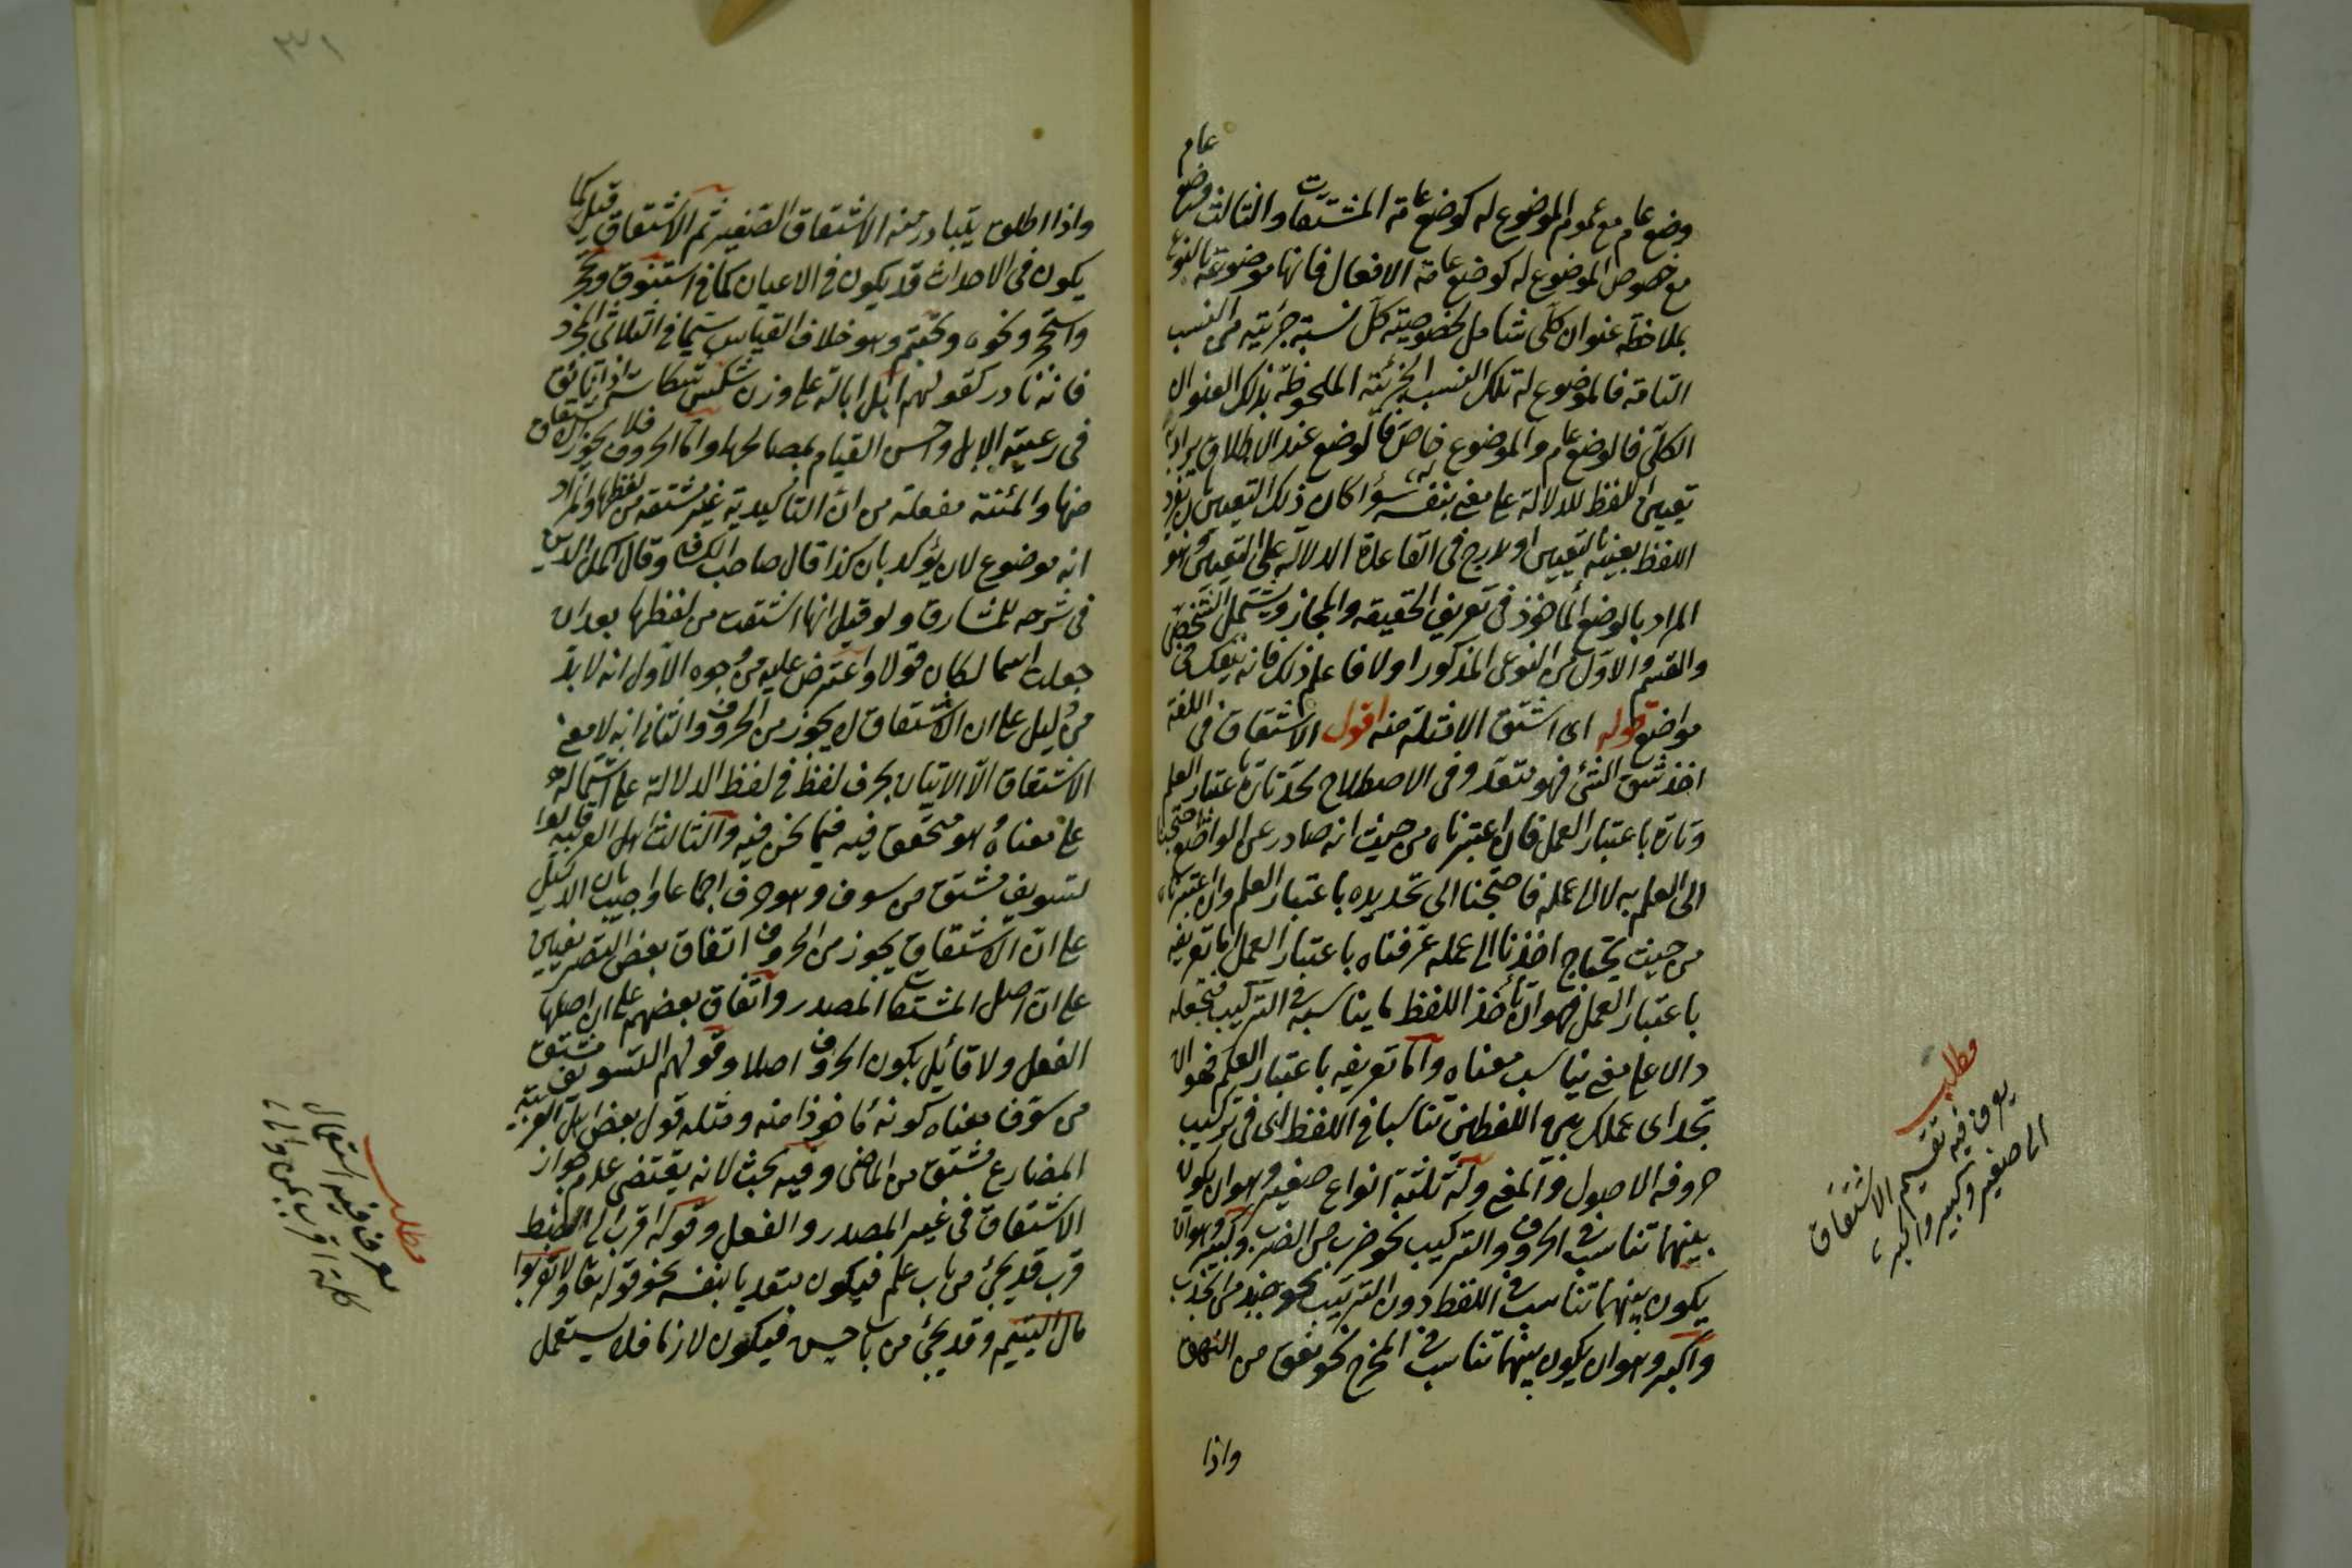 وضع عام مع عموم الموضوع له كوضع عامة المشتقات والثالث وضع عام
مع خصوص الموضوع له كوضع عامة الافعال فانها موضوعة بالنوع
بملاحظة عنوان كلى شامل لخصوصية كل نسبة جزئية من النسب
التامة فالموضوع له تلك النسب الجزئية الملحوظة بذلك العنوان
الكلى فالوضع عام والموضوع له خاص فالوضع عند الاطلاق يراد به
تعيين اللفظ للدلالة على معنى بنفسه سواء كان ذلك التعيين بان يفرد
اللفظ بعينه بالتعيين او لادرج فى القاعدة الدالة على التعيين وهو
المراد بالوضع المأخوذ فى تعريف الحقيقة والمجاز ويشتمل الشخصى
والقسم الاول من النوعى المذكور اولا فاعلم ذلك فانه ينفعك فى
مواضع قوله اى اشتق الافتلة منه اقول الاشتقاق فى اللغة
اخذ شق الشئ فهو متعد وفى الاصطلاح يحد تارة باعتبار العلم
وتارة باعتبار العمل فان اعتبرناه من حيث انه صادر عن الواضع احتجنا
الى العلم به لا الى عمله فاحتجنا الى تحديده باعتبار العلم وان اعتبرناه
من حيث يحتاج اخذنا الى عمله عرفناه باعتبار العمل اما تعريفه
باعتبار العمل فهو ان تأخذ اللفظ ما يناسبه فى التركيب فتجعله
دالا على معنى يناسب معناه واما تعريفه باعتبار العلم فهو ان
تجد اى عملك بين اللفظين تناسبا فى اللفظ اى فى تركيب
حروفه الاصول والمعنى وله ثلثة انواع صغير وهو ان يكون
بينهما تناسب فى الحروف والتركيب نحو ضرب من الضرب وكبير وهو ان
يكون بينهما تناسب فى اللفظ دون الترتيب نحو جبذ من الجذب
واكبر وهو ان يكون بينهما تناسب فى المخرج نحو نعق من النهق
واذا
مطلب
يعرف فيه تقسيم الاشتقاق
الى صغير وكبير واكبر
واذا اطلق يتبادر منه الاشتقاق الصغير ثم الاشتقاق قيل كما
يكون فى الاحداث قد يكون فى الاعيان كما فى استنوق وحجر
واستحجر ونحوه وتختم وهو خلاف القياس سيما فى الثلاثى المجرد
فانه نادر كقولهم ابل ابالة على وزن شكس شكاسة اذا تأنق
فى رعية الابل واحسن القيام بمصالحها واما الحروف فلا يجوز الاشتقاق
منها والمئنة مفعلة من ان التأكيدية غير مشتقة من لفظها والمراد
انه موضوع لان يؤكد بان كذا قال صاحب الكشاف وقال اكمل الدين
فى شرحه للمشارق ولو قيل انها اشتقت من لفظها بعد ان
جعلت اسما لكان قولا واعترض عليه من وجوه الاول انه لا بد
من دليل على ان الاشتقاق لا يجوز من الحروف والثانى انه لا معنى
الاشتقاق الا الاتيان بحرف لفظ فى لفظ الدلالة على اشتماله
على معناه وهو متحقق فيه فيما نحن فيه والثالث اهل العربية قالوا
لتسويف مشتق من سوف وهو حرف اجماعا واجيب بان الدليل
على ان الاشتقاق يجوز من الحروف اتفاق بعض البصريين
على ان اصل المشتقات المصدر واتفاق بعضهم على ان اصلها
الفعل ولا قائل بكون الحروف اصلا وقولهم التسويف مشتق
من سوف معناه كونه مأخوذا منه ومثله قول بعض اهل العربية
المضارع مشتق من الماضى وفيه بحث لانه يقتضى عدم جواز
الاشتقاق فى غير المصدر والفعل وقوله اقرب الى الضبط
قرب قد يجئ من باب علم فيكون متعديا بنفسه نحو قوله تعالى ولا تقربوا
مال اليتيم وقد يجئ من باب حسن فيكون لازما فلا يستعمل
مطلب
يعرف فيه استعمال
كلمة اقرب بمن والى